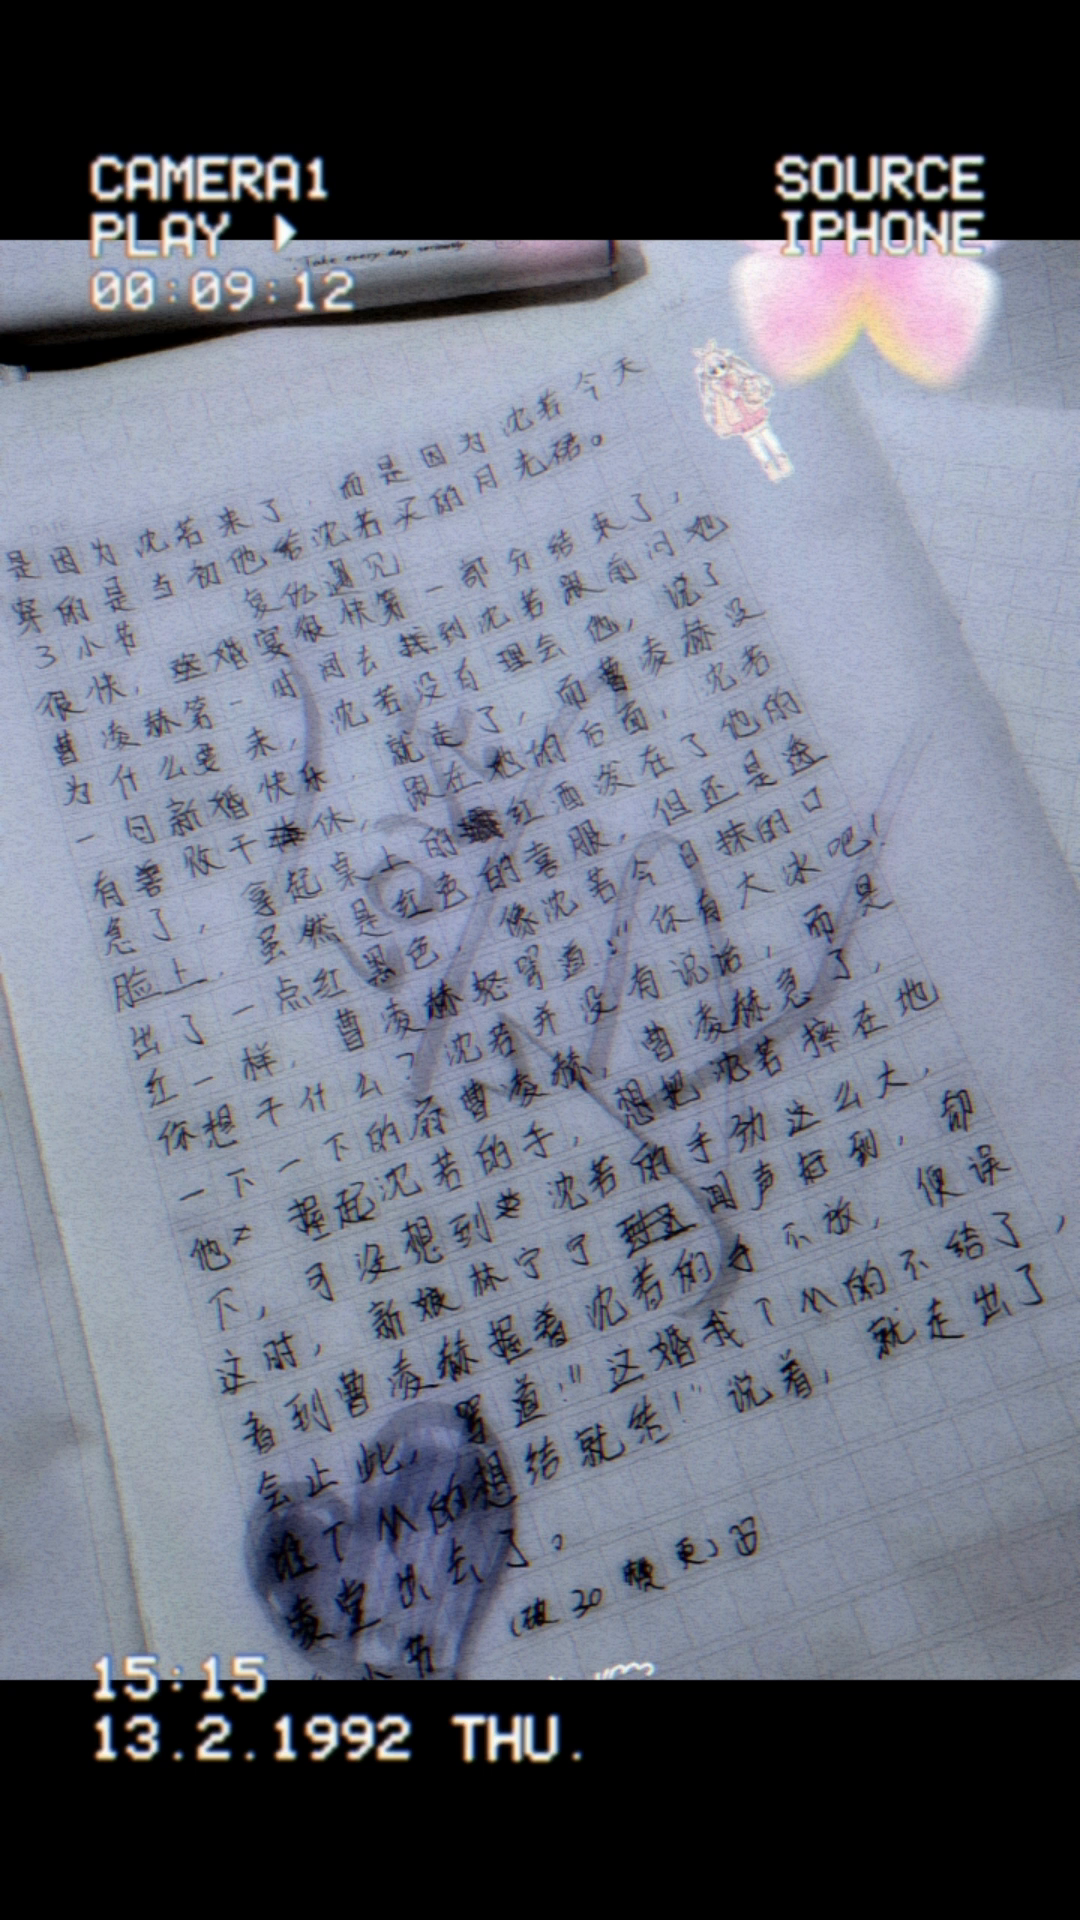 CAMERA1
PLAY
00:09:12
SOURCE
IPHONE
Take every day seriously
是因为沈若来了，而是因为沈若今天
穿的是当初他给沈若买的月光裙。
3小节 复仇遇见
很快，婚宴很快第一部分结束了，
曹凌赫第一时间去找到沈若跟前问她
为什么要来，沈若没有理会他，说了
一句新婚快乐，就走了，而曹凌赫没
有善败干休，跟在她的后面，沈若
急了，拿起桌上的红酒发在了他的
脸上，虽然是红色的喜服，但还是透
出了一点红黑色，像沈若今日抹的口
红一样，曹凌赫怒骂道："你有大冰吧！
你想干什么？沈若并没有说话，而是
一下一下的曹凌赫，曹凌赫急了，
他握起沈若的手，想把沈若摔在地
下，可没想到沈若的手劲这么大，
这时，新娘林宁宁闻声赶到，却
看到曹凌赫握着沈若的手不放，便误
会止此，骂道："这婚我TM的不结了，
谁TM的想结就结！"说着，就走出了
宴堂出去了。
30 更
小节
15:15
13.2.1992 THU.